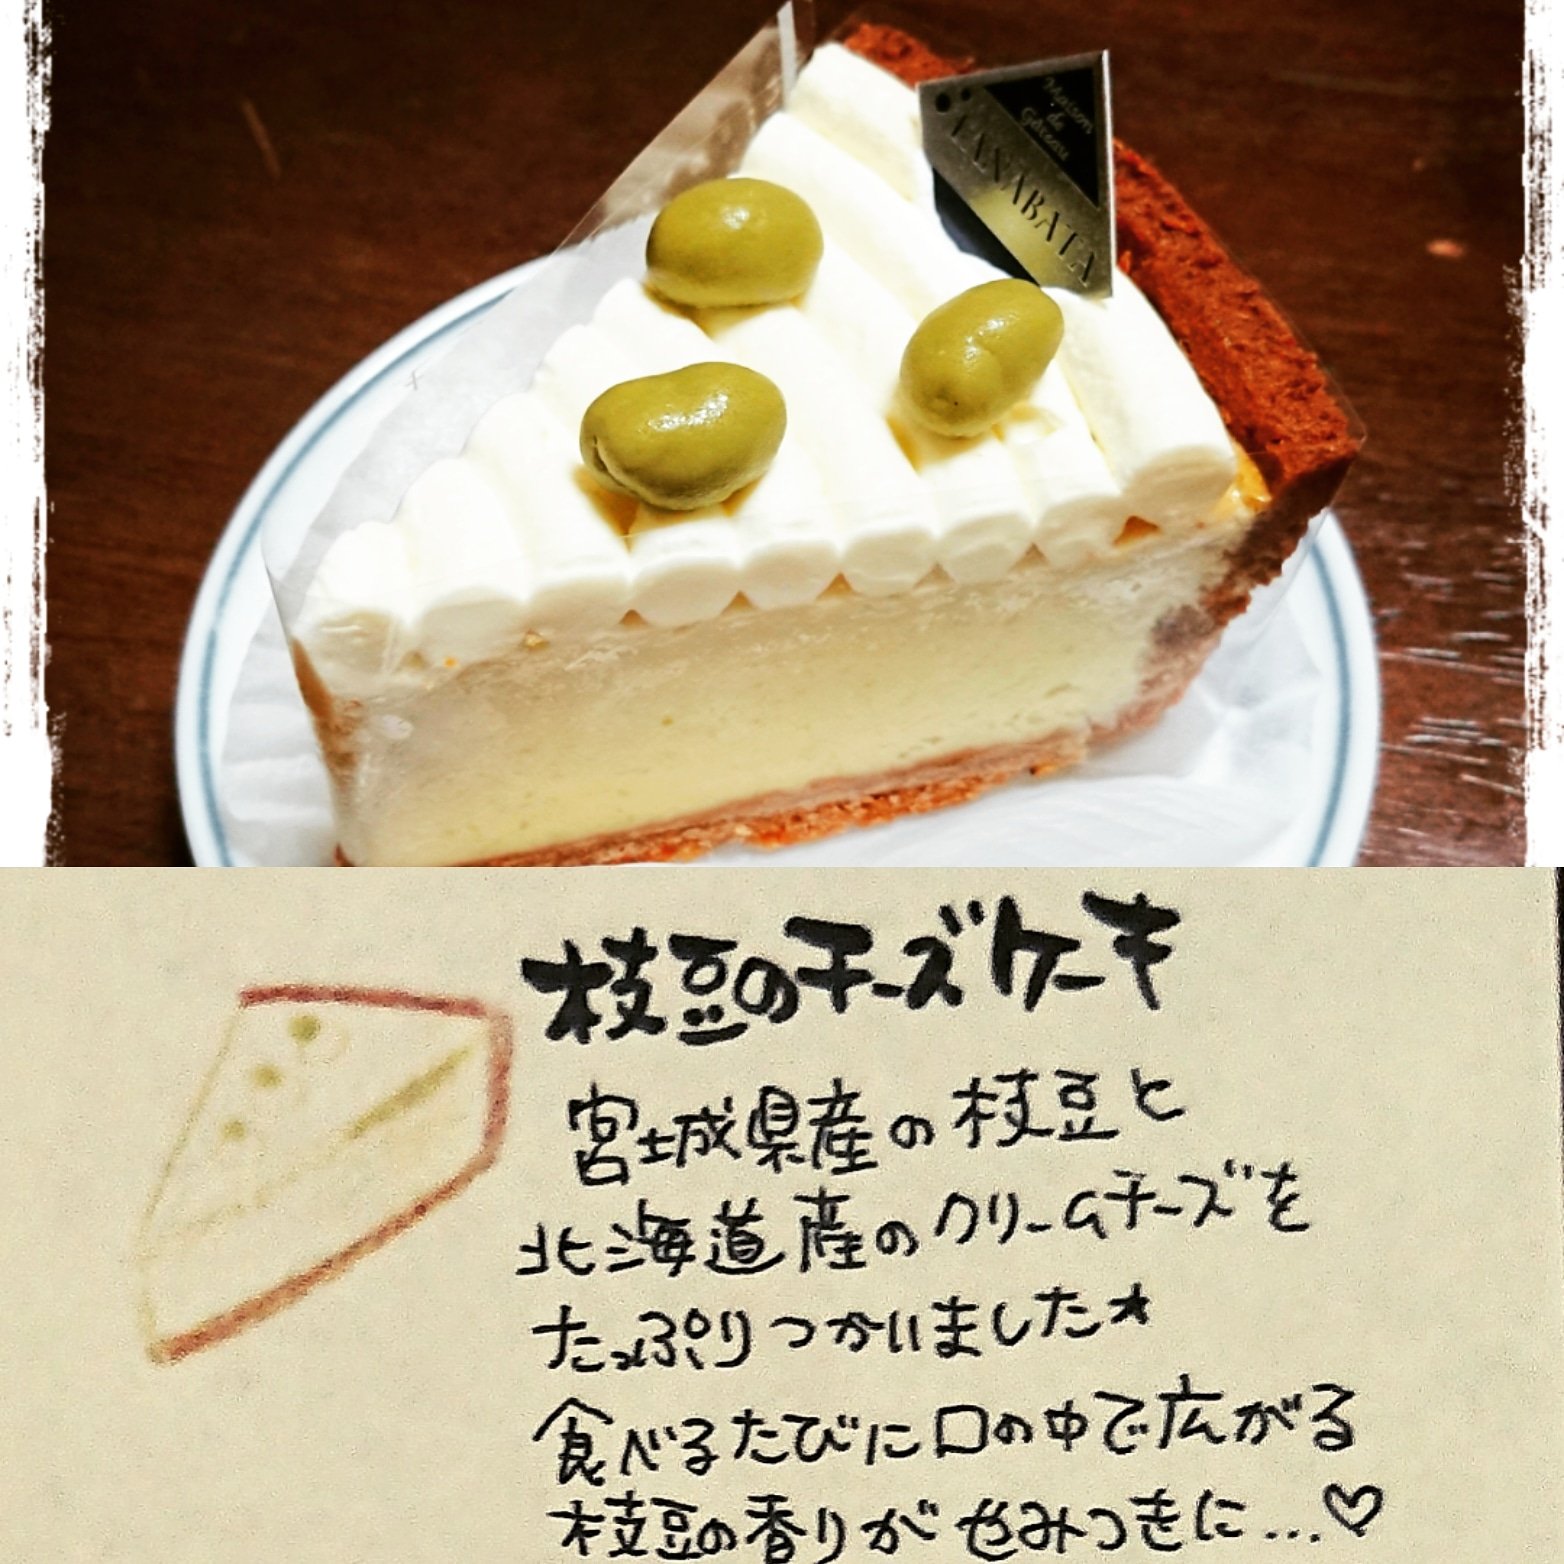 Maison
de
Gâteau
TANABATA
枝豆のチーズケーキ
宮城県産の枝豆と
北海道産のクリームチーズを
たっぷりつかいました★
食べるたびに口の中で広がる
枝豆の香りがやみつきに…♡